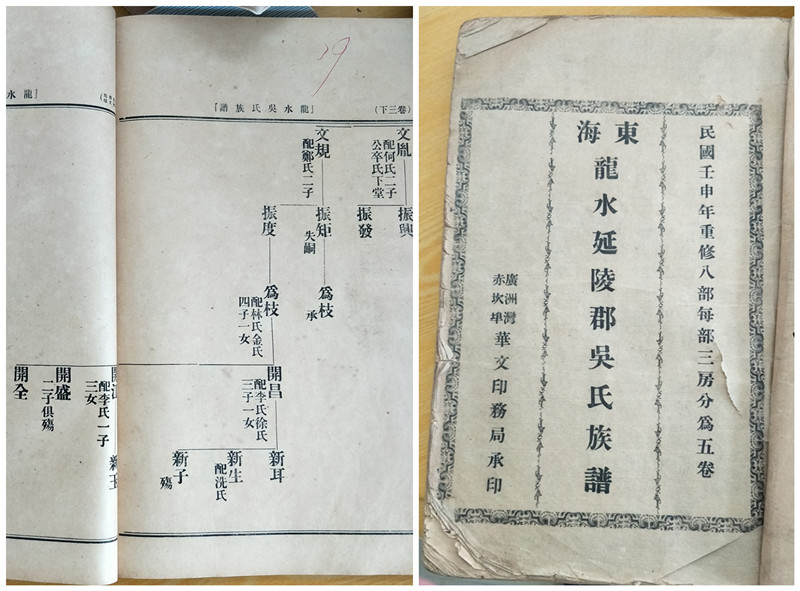 龍水
29
(卷三下)
『龍水吳氏族譜』
文胤
配何氏二子
公卒氏下堂
振興
振發
文規
配鄭氏二子
振矩
失嗣
爲枝
承
振度
爲枝
配林氏金氏
四子一女
開昌
配李氏徐氏
三子一女
新耳
新生
配冼氏
新子
殤
配李氏一子
三女
新玉
開盛
二子俱殤
開全
民國壬申年重修八部每部三房分爲五卷
東海
龍水延陵郡吳氏族譜
廣洲灣
赤坎埠
華文印務局承印